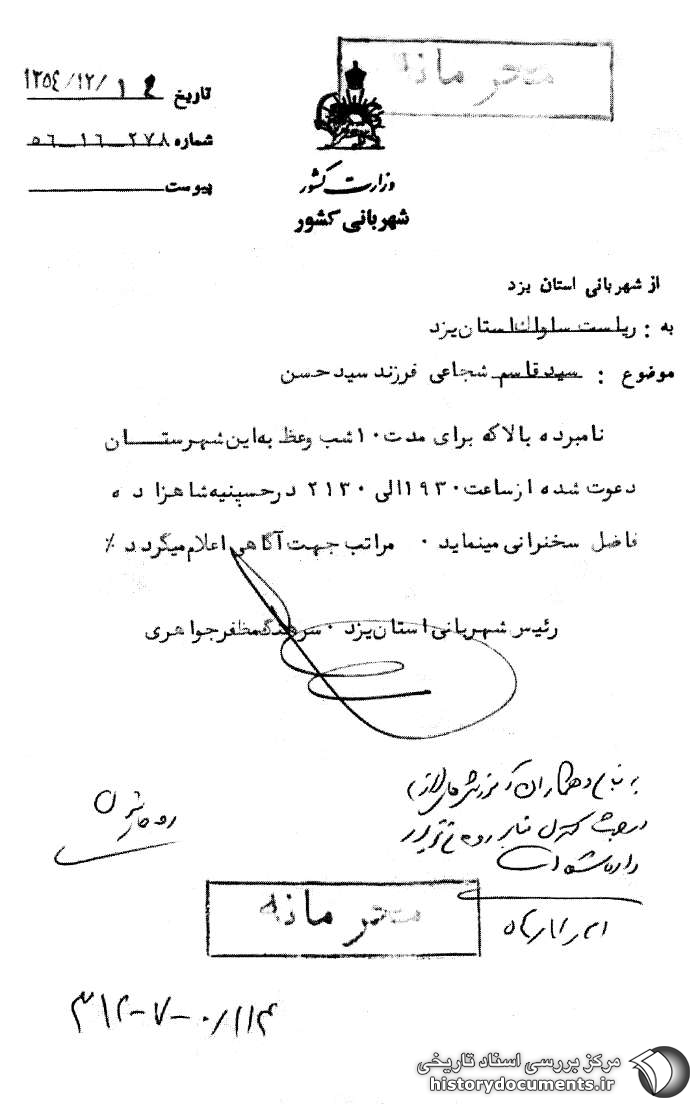 محرمانه
تاریخ ۱۳۵۴/۱۲/۱۴
شماره ۵۶ـ۱۶ـ۲۷۸
پیوست
وزارت کشور
شهربانی کشور
از شهربانی استان یزد
به : ریاست ساواک استان یزد
موضوع : سید قاسم شجاعی فرزند سید حسن
نامبرده بالا که برای مدت ۱۰ شب وعظ به این شهرستـــان
دعوت شده از ساعت ۱۹۳۰ الی ۲۱۳۰ در حسینیه شاهزاده
فاضل سخنرانی مینماید ۰ مراتب جهت آگاهی اعلام میگردد ٪
رئیس شهربانی استان یزد ۰ سرهنگ مظفر جواهری
به همکاران آموزش های لازم
در جهت کنترل منابر
داده شده است
محرمانه
۳۱۲-۷-۰/۱۱۴
مرکز بررسی اسناد تاریخی
historydocuments.ir